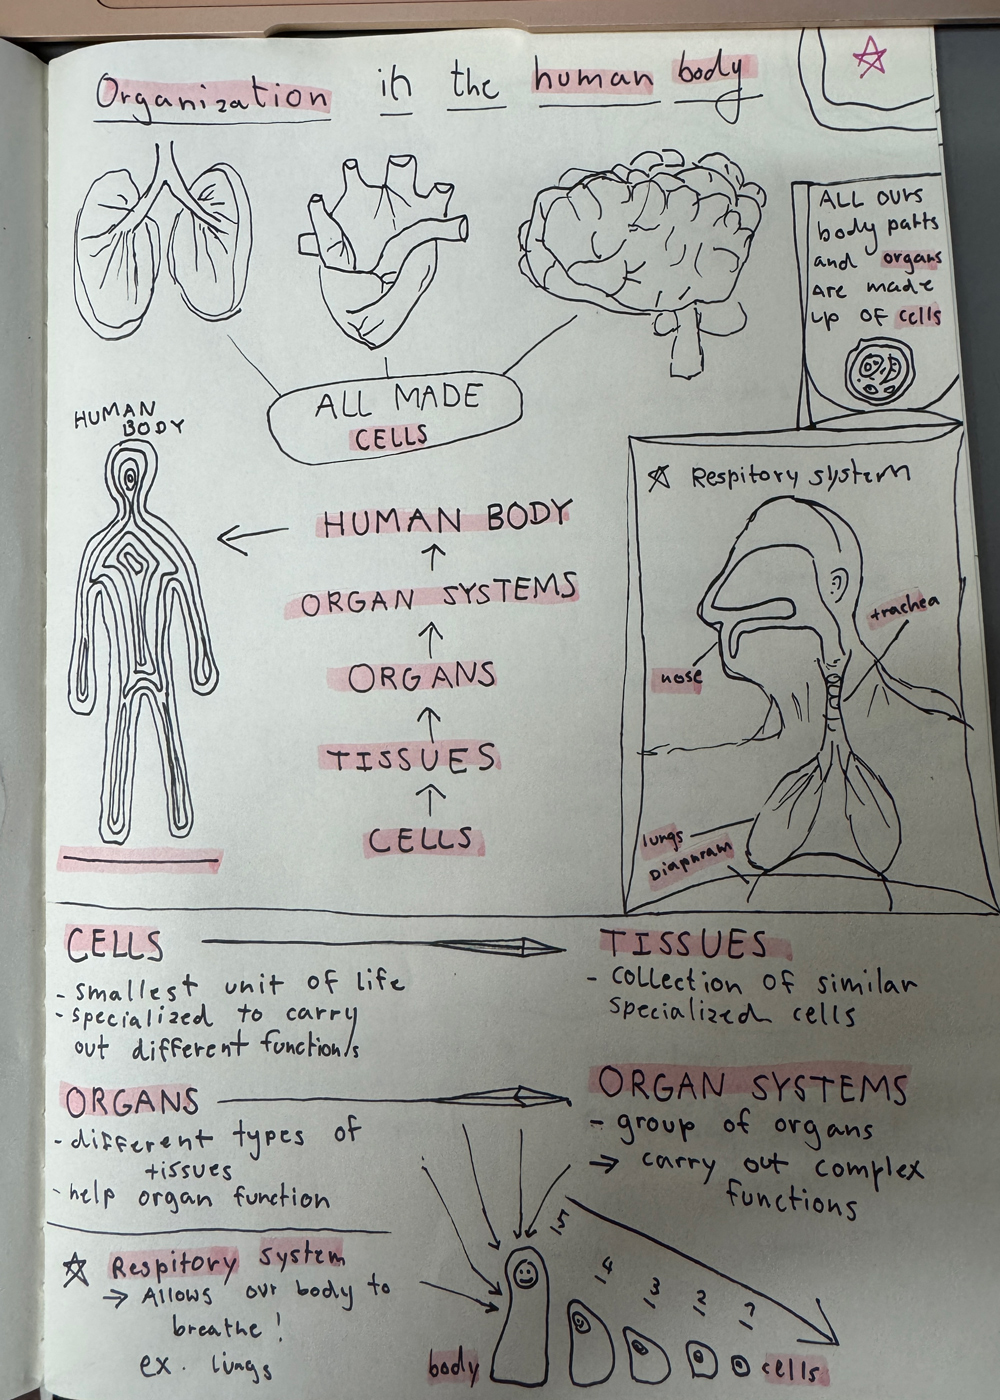 Organization in the human body
ALL OURS
body patts
and organs
are made
up of cells
ALL MADE
CELLS
HUMAN
BODY
HUMAN BODY
ORGAN SYSTEMS
ORGANS
TISSUES
CELLS
Respitory system
trachea
nose
lungs
Diaphram
CELLS
- smallest unit of life
- specialized to carry
out different function/s
TISSUES
- collection of similar
specialized cells
ORGANS
- different types of
tissues
- help organ function
ORGAN SYSTEMS
- group of organs
→ carry out complex
functions
Respitory system
→ Allows our body to
breathe!
ex. lungs
5
4
3
2
1
body
cells